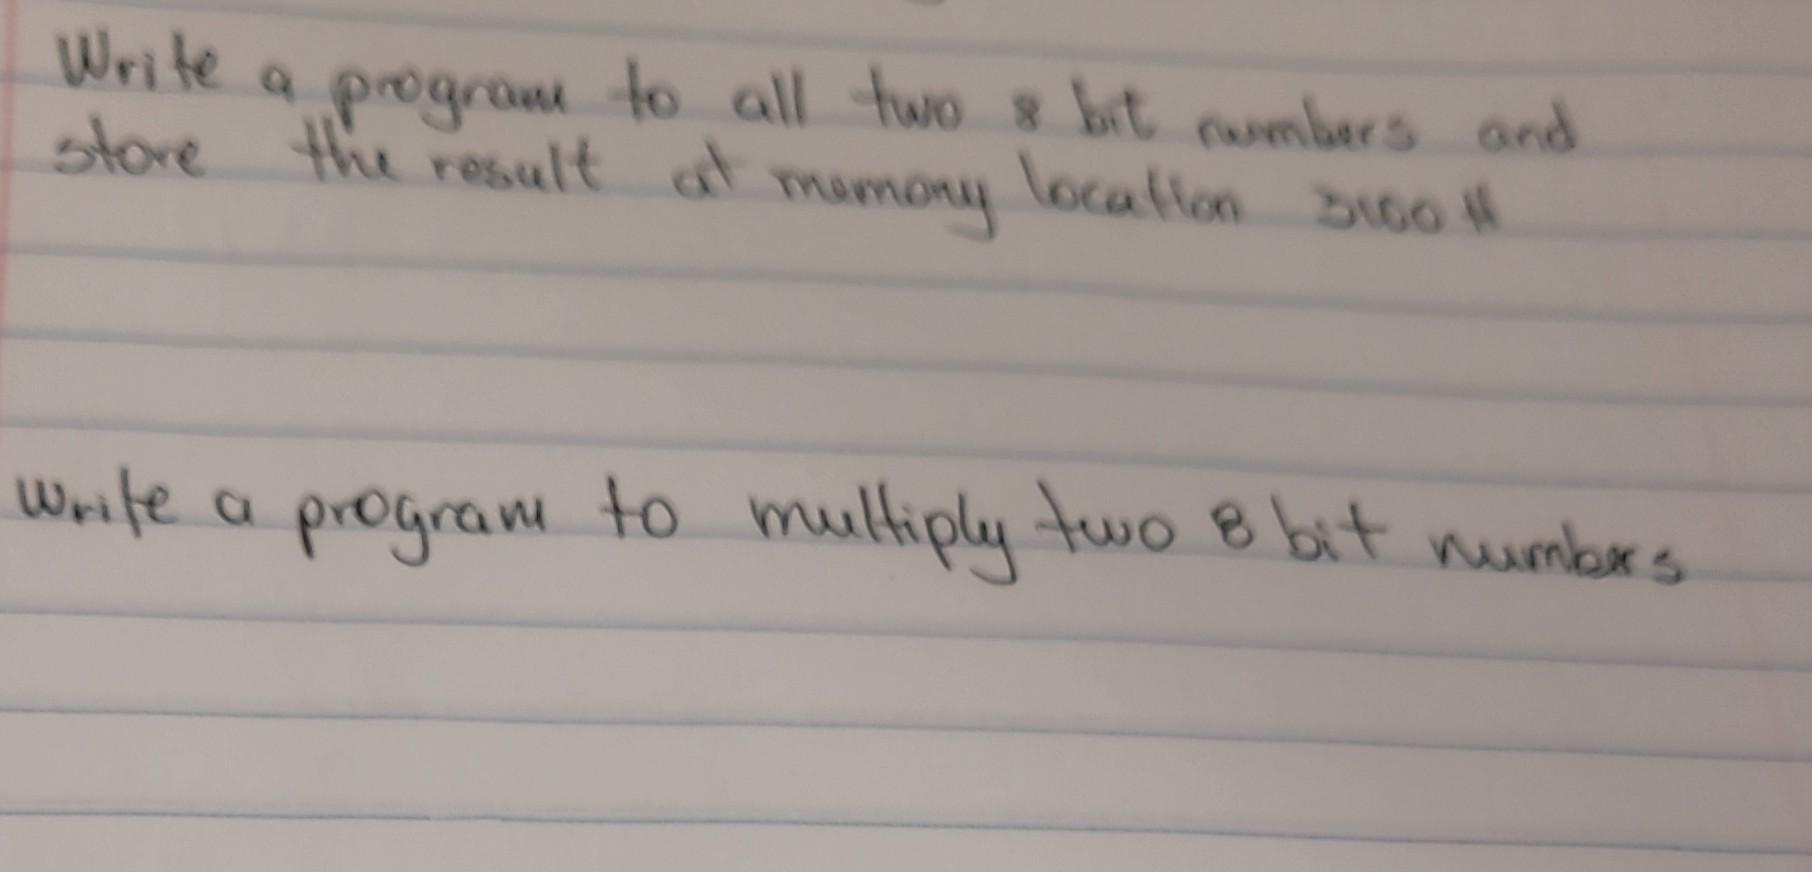 Write a program to all two 8 bit numbers and
store the result at memony location 3100 H
write a program to multiply two 8 bit numbers